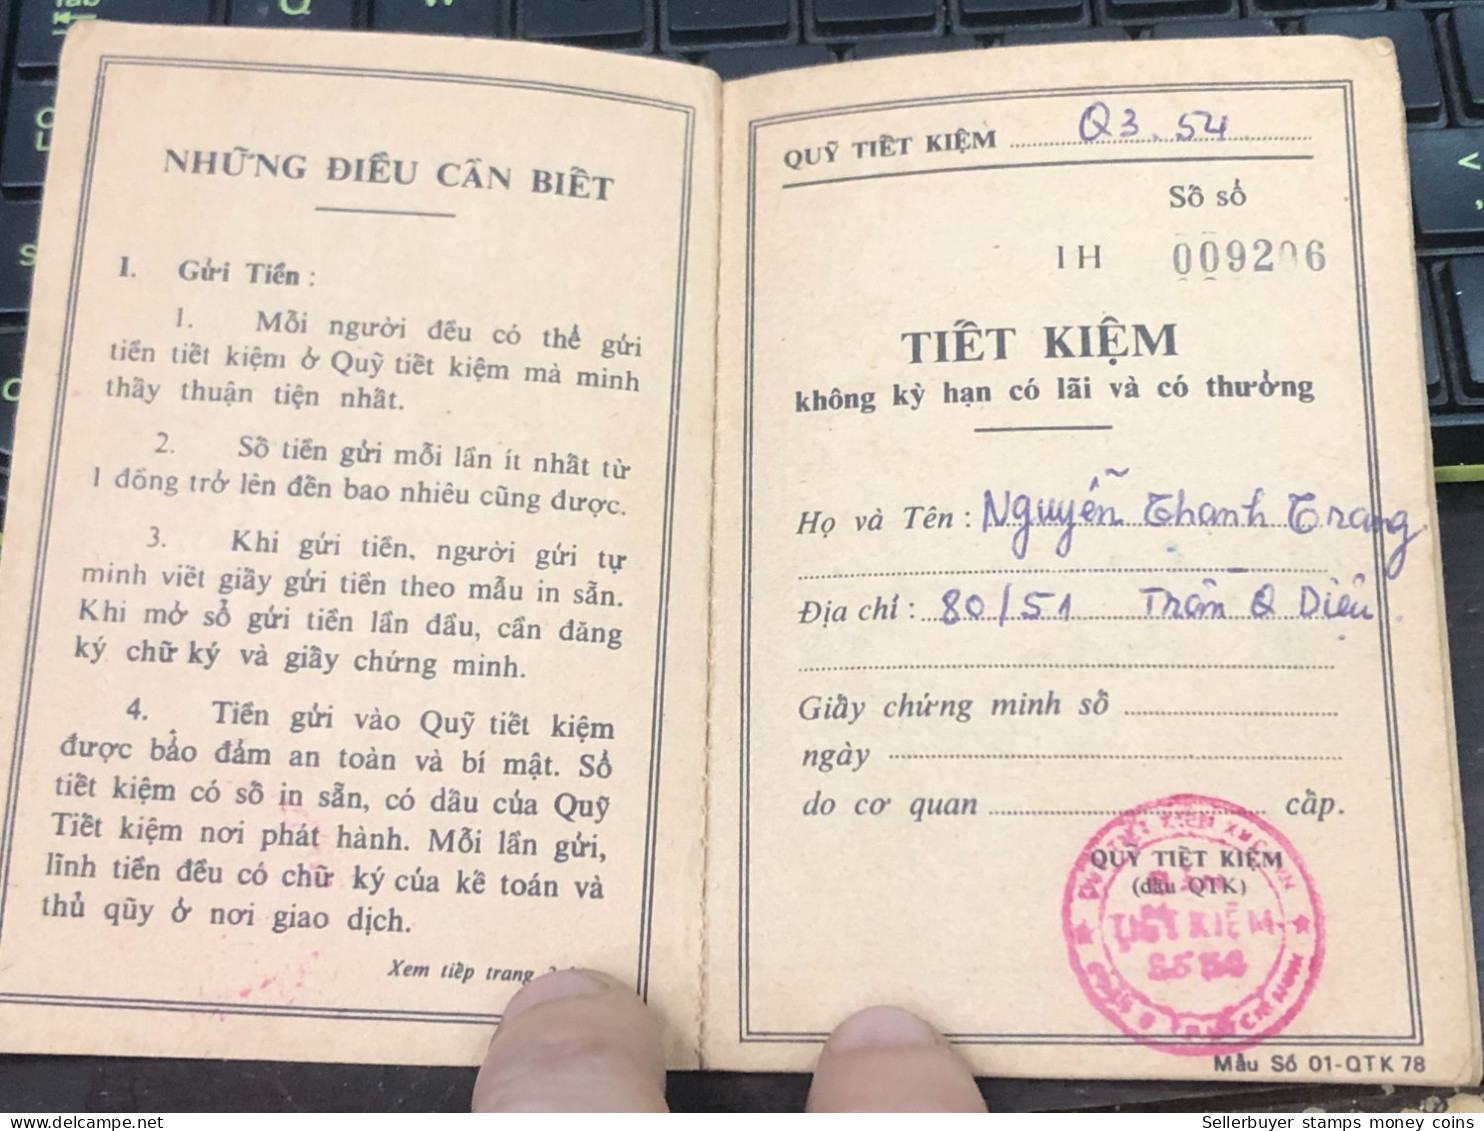 NHỮNG ĐIỀU CẦN BIẾT
I. Gửi Tiền :
1. Mỗi người đều có thể gửi
tiền tiết kiệm ở Quỹ tiết kiệm mà mình
thấy thuận tiện nhất.
2. Số tiền gửi mỗi lần ít nhất từ
1 đồng trở lên đến bao nhiêu cũng được.
3. Khi gửi tiền, người gửi tự
mình viết giấy gửi tiền theo mẫu in sẵn.
Khi mở sổ gửi tiền lần đầu, cần đăng
ký chữ ký và giấy chứng minh.
4. Tiền gửi vào Quỹ tiết kiệm
được bảo đảm an toàn và bí mật. Sổ
tiết kiệm có số in sẵn, có dấu của Quỹ
Tiết kiệm nơi phát hành. Mỗi lần gửi,
lĩnh tiền đều có chữ ký của kế toán và
thủ qũy ở nơi giao dịch.
Xem tiếp trang
QUỸ TIẾT KIỆM Q3.54
Số sổ
1H 009206
TIẾT KIỆM
không kỳ hạn có lãi và có thưởng
Họ và Tên : Nguyễn Thanh Trang
Địa chỉ : 80/51 Trần Q Diệu
Giấy chứng minh số
ngày
do cơ quan cấp.
QUỸ TIẾT KIỆM
(dấu QTK)
TIẾT KIỆM
Mẫu Số 01-QTK 78
Sellerbuyer stamps money coins